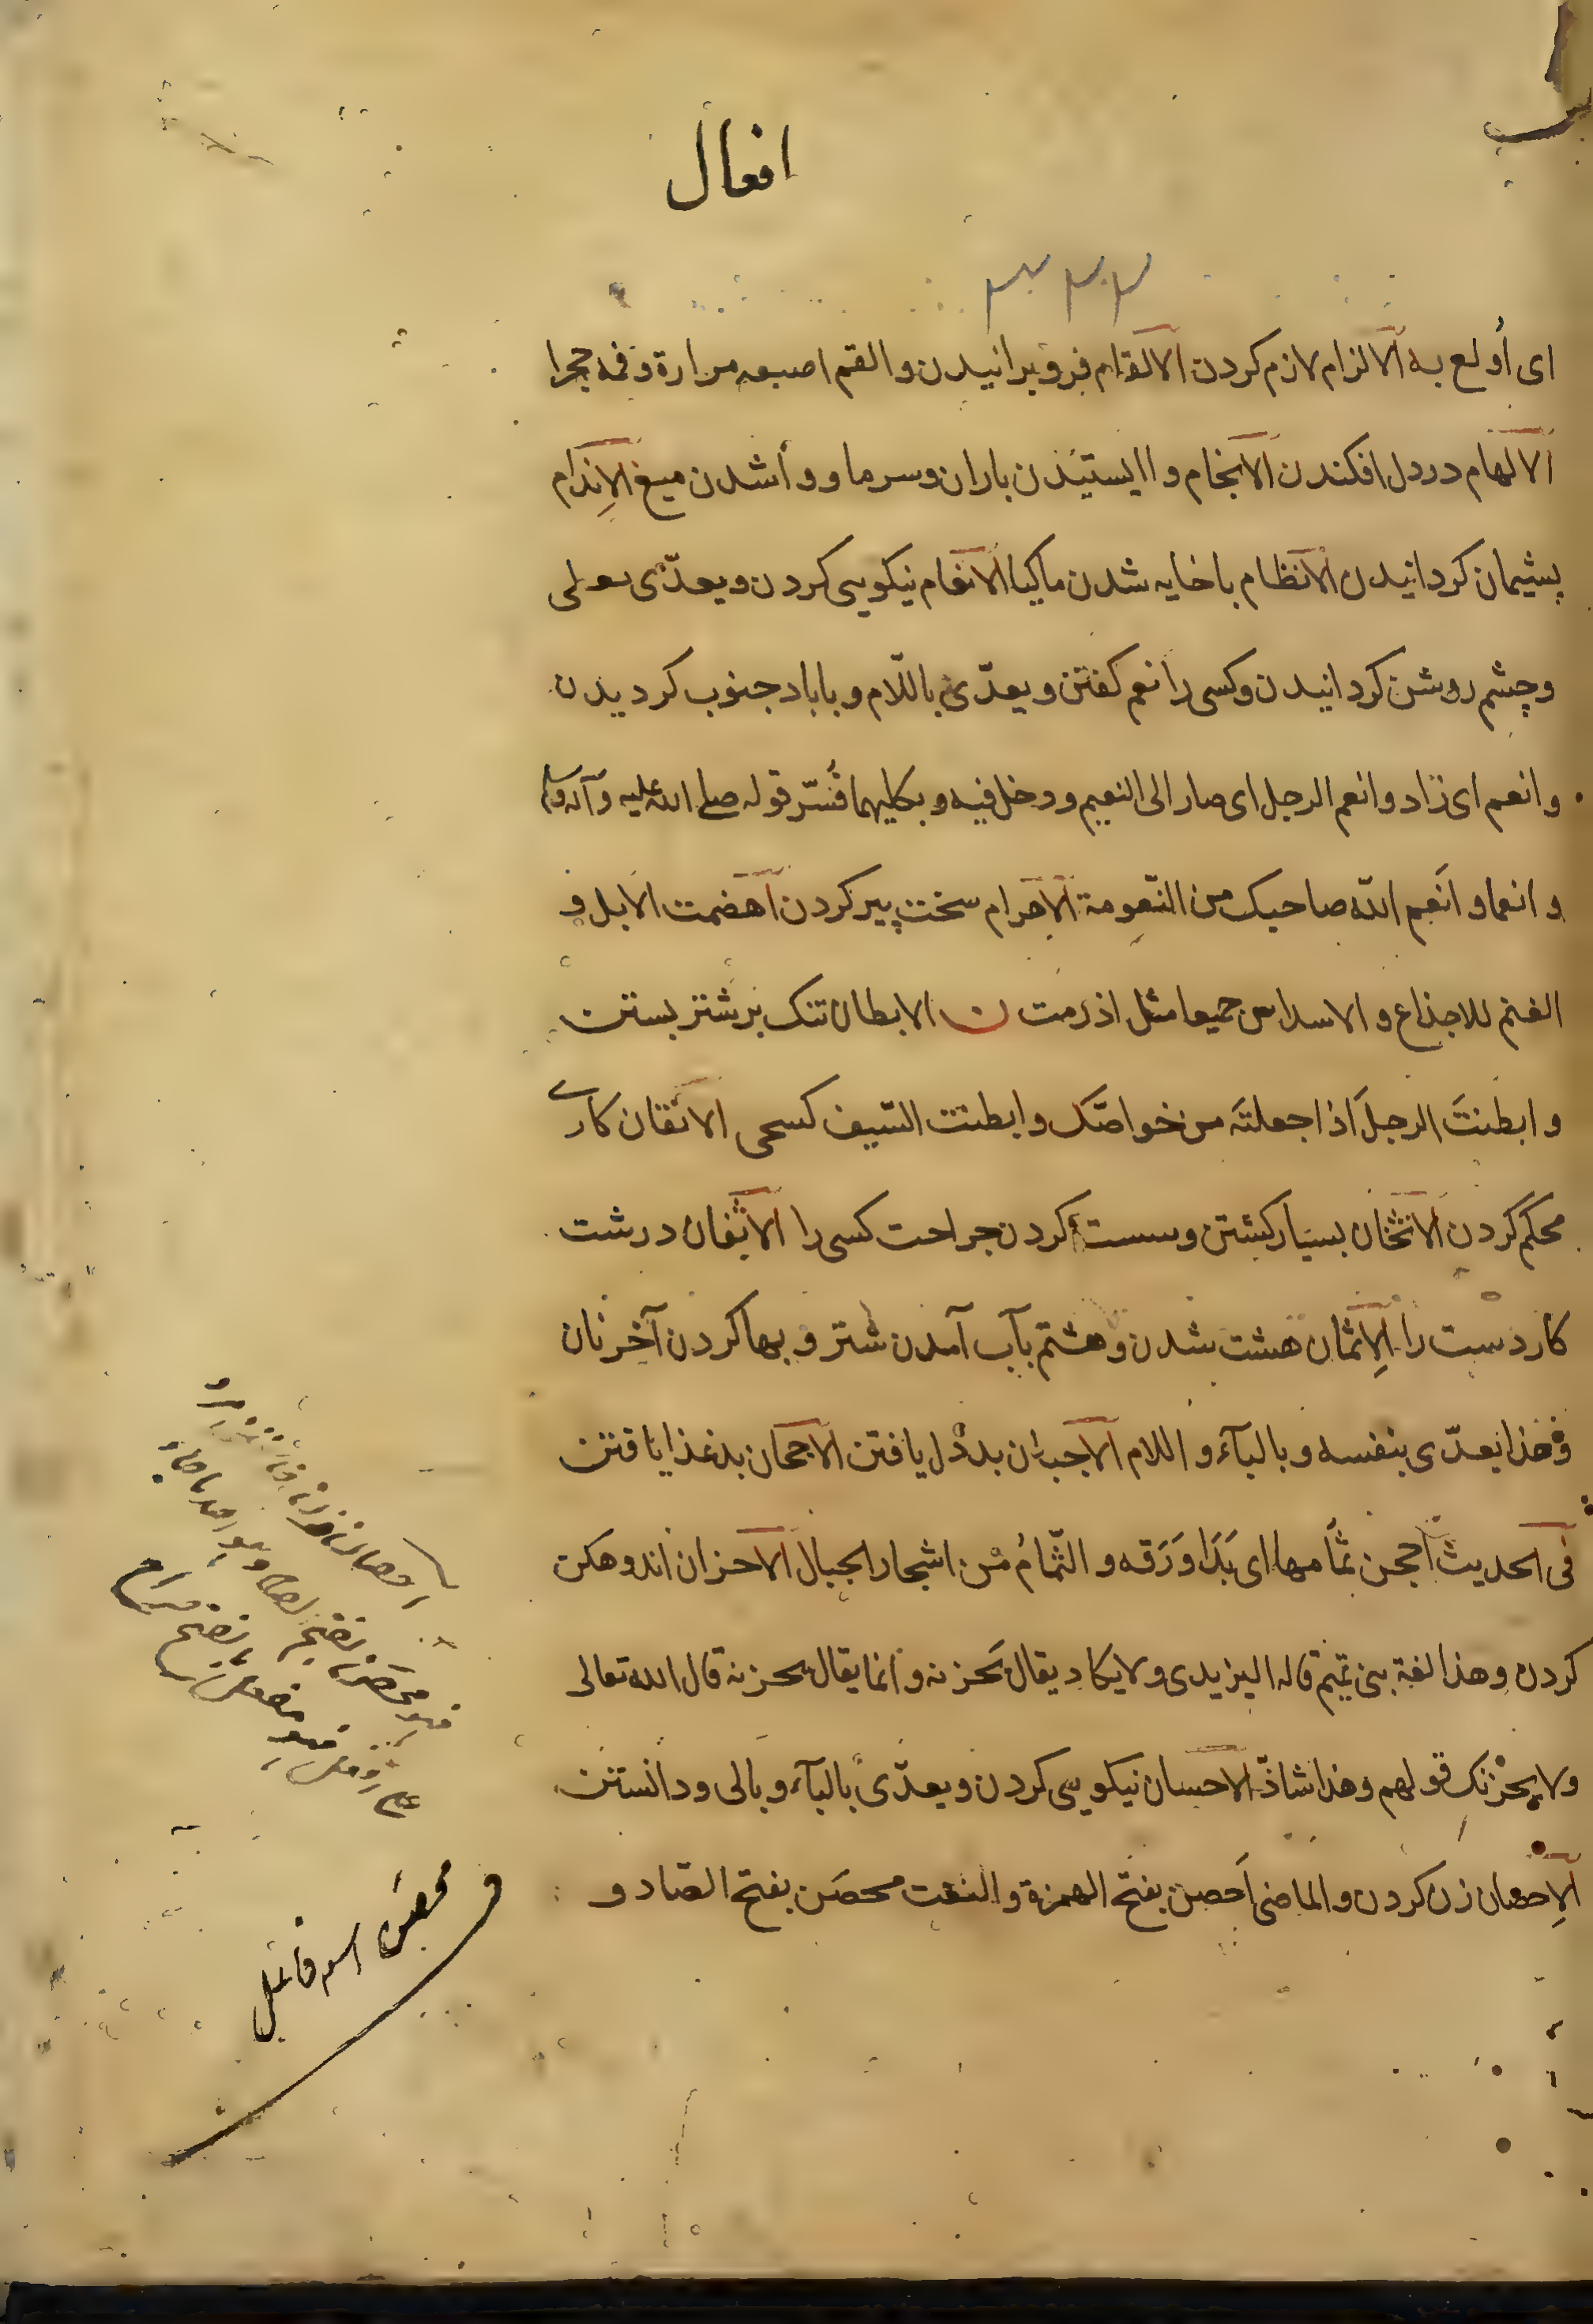 افعال
ای أولع به الالزام لازم کردن الالقام فرو برانیدن و القم اصبعه مرارة و فمه حجرا
الالهام در دل افکندن الانجام وا ایستیذن باران و سرما و وأشدن میغ الاِندام
پشیمان کردانیدن الانظام با خایه شدن ماکیا الانعام نیکویی کردن و یعدّی بعلی
و چشم روشن کردانیدن و کسی را نعم کفتن و یعدّی باللّام و با باد جنوب کردیدن
و انعم ای زاد و انعم الرجل ای صار الی النعیم و دخل فیه و بکلیهما فُسّر قوله صلی الله علیه و آله وسلم
و انعما و اَنعم الله صاحبک من النّعومة الاهرام سخت پیر کردن اهضمت الابل و
الغنم للاجذاع و الاسداس جمیعا مثل اذرمت ن الابطان تنک بر شتر بستن
و ابطنتَ الرجلَ اذا جعلتَه من خواصّک و ابطنت السّیف کسحی الاتقان کاری
محکم کردن الاثخان بسیار کشتن و سست کردن جراحت کسی را الاثفان درشت
کار دست را الاِثمان هشت شدن و هشتم بآب آمدن شتر و بها کردن آخرنان
و هذا یعدّی بنفسه و بالبآء و اللام الاجبان بددل یافتن الاجحان بدغذا یافتن
فی الحدیث احجن ثُمامها ای بَدَا وَرَقه و الثّمامُ من اشجار الجبال الاحزان اندوهکن
کردن و هذا لغة بنی تمیم قاله الیزیدی و لا یکاد یقال یَحزنه و انما یقال یحزنه قال الله تعالی
و لا یحزنک قولهم و هذا شاذّ الاحسان نیکویی کردن و یعدّی بالبآء و بالی و دانستن
الاِحصان زن کردن و الماضی اَحصن بفتح الهمزة و النعت محصَن بفتح الصّاد و
فهو محصَن بفتح
اسم فاعل